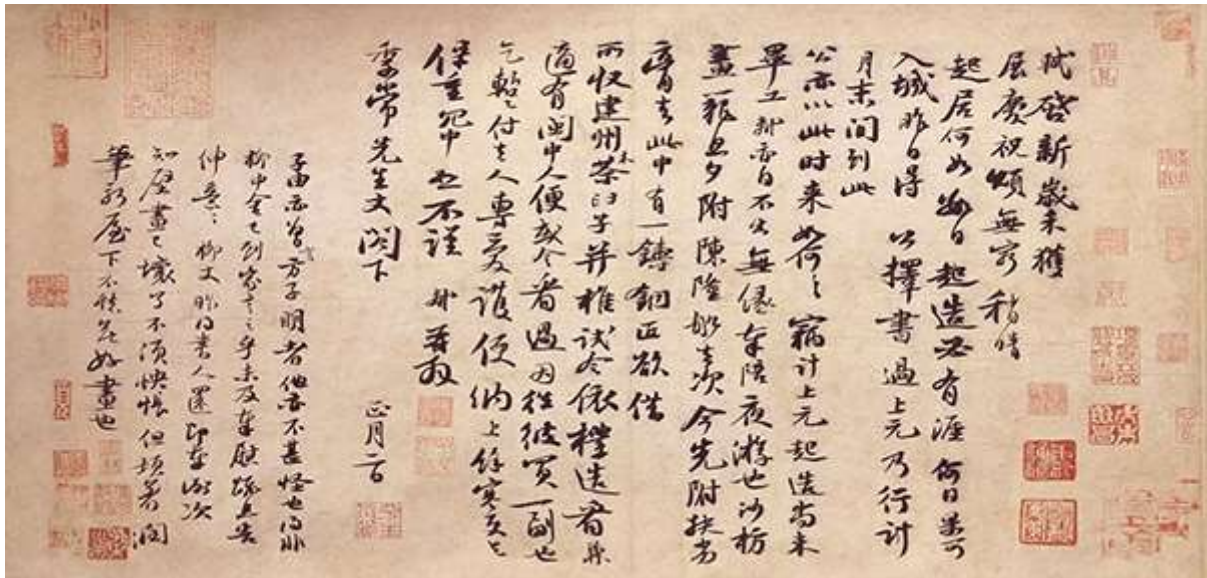 軾啓新歲未獲
展慶祝頌無窮稍晴
起居何如數日起造必有涯何日果可
入城昨日得公擇書過上元乃行計
月末間到此
公亦以此時來如何々竊計上元起造尚未
畢工軾亦自不出無緣奉陪夜游也沙枋
畫籠旦夕附陳隆船去次今先附扶劣
膏去此中有一鑄銅匠欲借
所收建州木茶臼子并椎試令依樣造看兼
適有閩中人便或令看過因往彼買一副也
乞暫付去人專愛護便納上餘寒更乞
保重冗中恕不謹軾再拜
季常先生丈閣下 正月二日
子由亦曾言方子明者他亦不甚怪也得非
柳中舍已到家言之乎未及奉慰疏且告
伸意々柳丈昨得書人還即奉謝次
知壁畫已壞了不須怏悵但頓著潤
筆新屋下不愁無好畫也